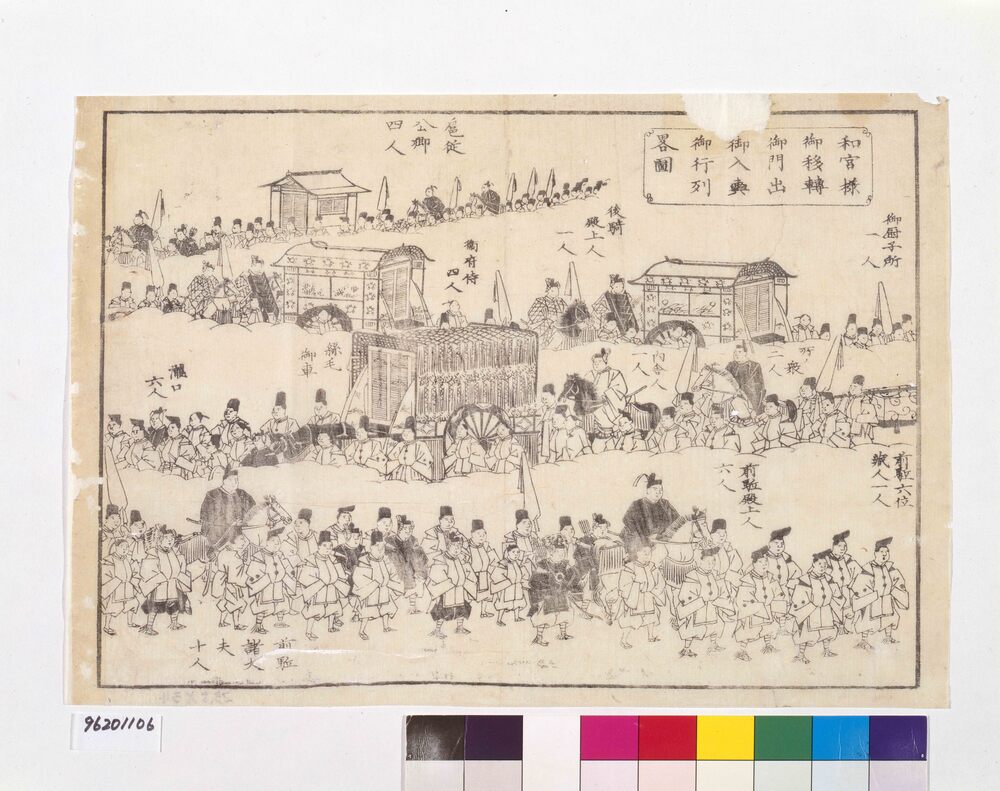 和宮様
御移轉
御門出
御入輿
御行列
畧圖
御厨子所
一人
後騎
殿上人
一人
扈従
公卿
四人
衛府侍
四人
所衆
二人
内舎人
一人
絲毛
御車
瀧口
六人
前駈六位
蔵人一人
前駈殿上人
六人
前駈
諸大
夫
十人
96201106